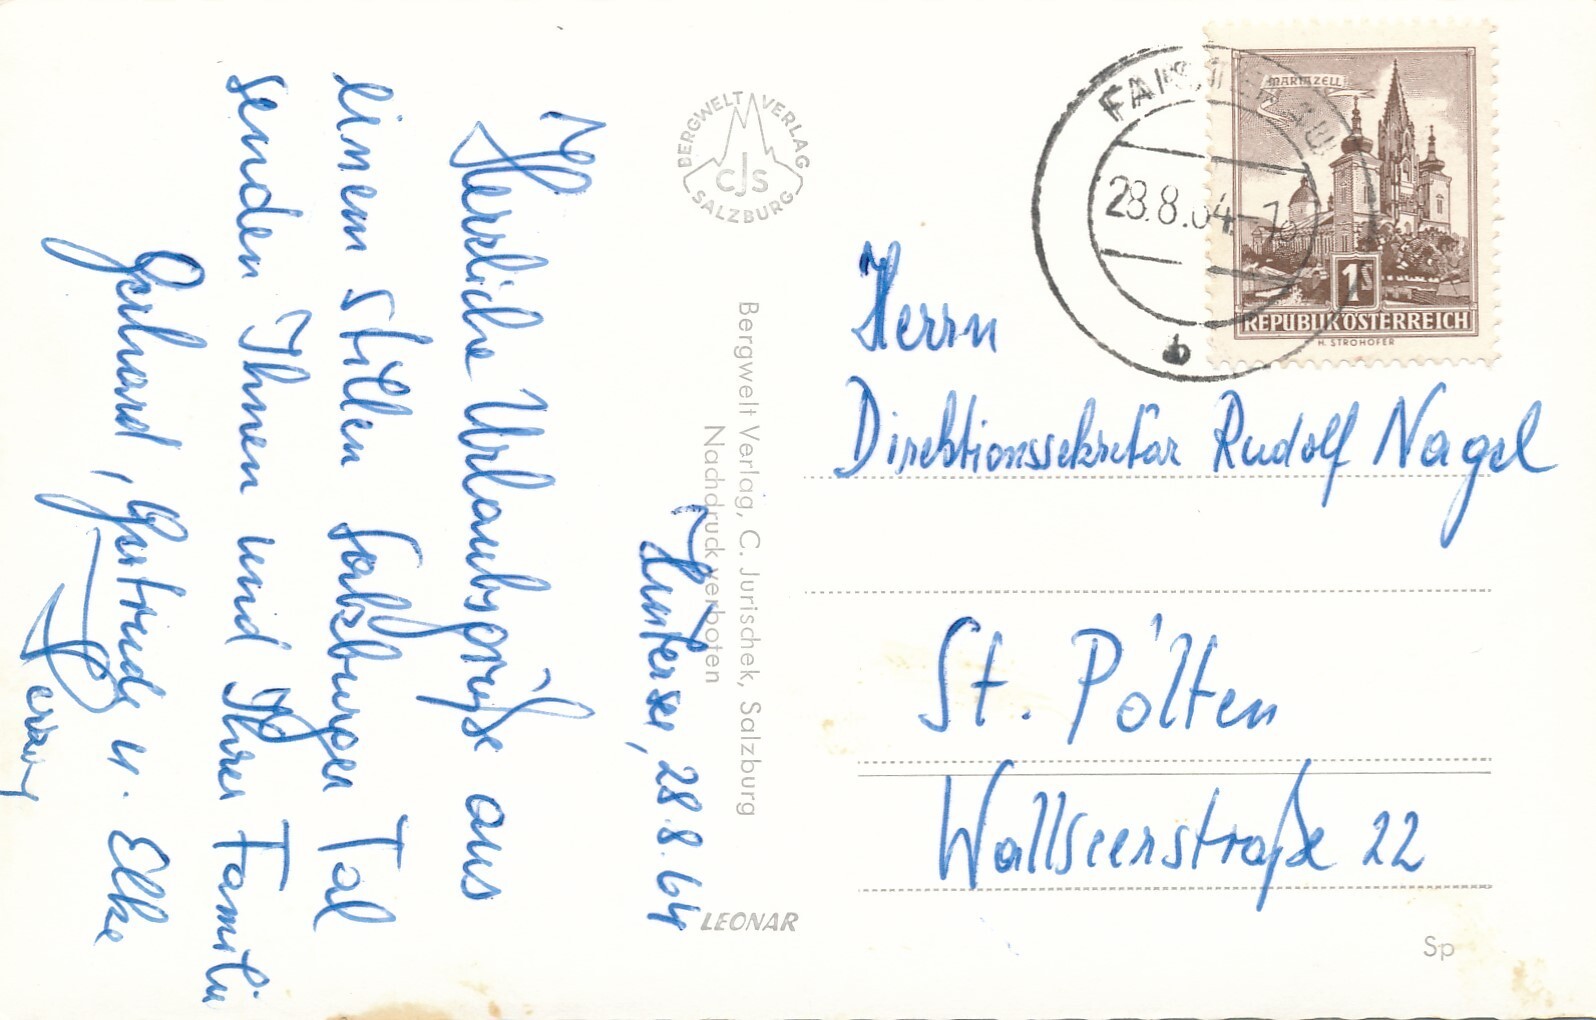 Hintersee, 28.8.64
Herrliche Urlaubsgrüße aus
einem stillen Salzburger Tal
senden Ihnen und Ihrer Familie
Gerhard, Gertrude u. Elke
BERGWELT VERLAG
CJS
SALZBURG
Bergwelt Verlag, C. Jurischek, Salzburg
Nachdruck verboten
LEONAR
28.8.64
b
MARIAZELL
1S
REPUBLIK ÖSTERREICH
H. STROHOFER
Herrn
Direktionssekretär Rudolf Nagel
St. Pölten
Wallseerstraße 22
Sp